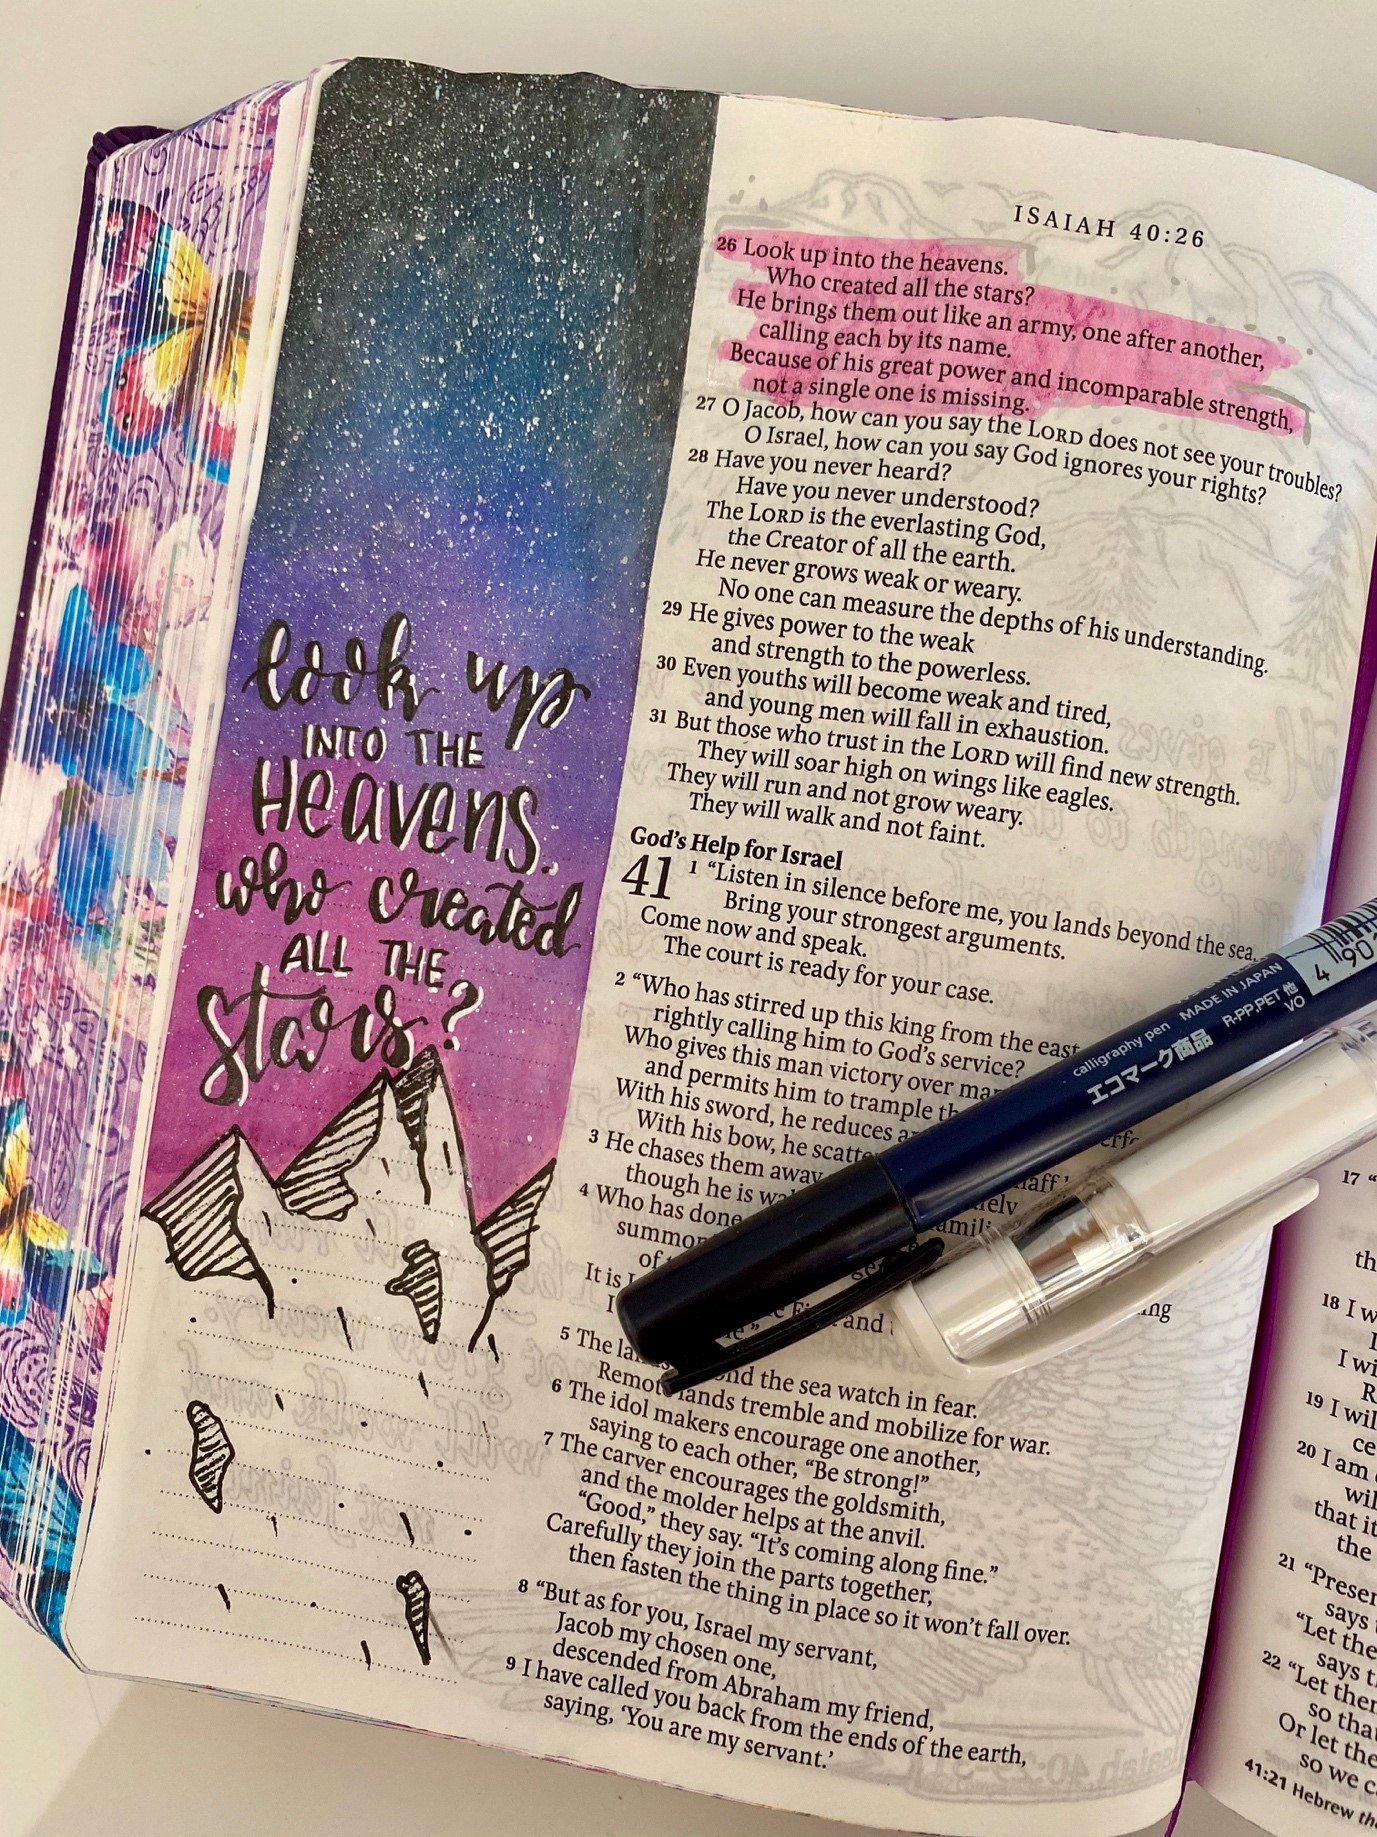 look up
INTO THE
Heavens.
who created
ALL THE
Stars?
ISAIAH 40:26
26 Look up into the heavens.
Who created all the stars?
He brings them out like an army, one after another,
calling each by its name.
Because of his great power and incomparable strength,
not a single one is missing.
27 O Jacob, how can you say the LORD does not see your troubles?
O Israel, how can you say God ignores your rights?
28 Have you never heard?
Have you never understood?
The LORD is the everlasting God,
the Creator of all the earth.
He never grows weak or weary.
No one can measure the depths of his understanding.
29 He gives power to the weak
and strength to the powerless.
30 Even youths will become weak and tired,
and young men will fall in exhaustion.
31 But those who trust in the LORD will find new strength.
They will soar high on wings like eagles.
They will run and not grow weary.
They will walk and not faint.
God's Help for Israel
41 1 "Listen in silence before me, you lands beyond the sea.
Bring your strongest arguments.
Come now and speak.
The court is ready for your case.
2 "Who has stirred up this king from the east,
rightly calling him to God's service?
Who gives this man victory over
and permits him to trample
With his sword, he reduces
With his bow, he
3 He chases them away
though he is
4 Who has done
of
It is
I and
5 The beyond the sea watch in fear.
Remote lands tremble and mobilize for war.
6 The idol makers encourage one another,
saying to each other, "Be strong!"
7 The carver encourages the goldsmith,
and the molder helps at the anvil.
"Good," they say. "It's coming along fine."
Carefully they join the parts together,
then fasten the thing in place so it won't fall over.
8 "But as for you, Israel my servant,
Jacob my chosen one,
descended from Abraham my friend,
9 I have called you back from the ends of the earth,
saying, 'You are my servant.'
calligraphy pen MADE IN JAPAN
エコマーク商品 R-PP,PET 他
VO
4 90
17 "
th
18 I w
I wi
R
19 I wil
ce
20 I am
wil
that it
the
21 "Presen
says
"Let the
says t
22 "Let then
so that
Or let the
so we c
41:21 Hebrew the